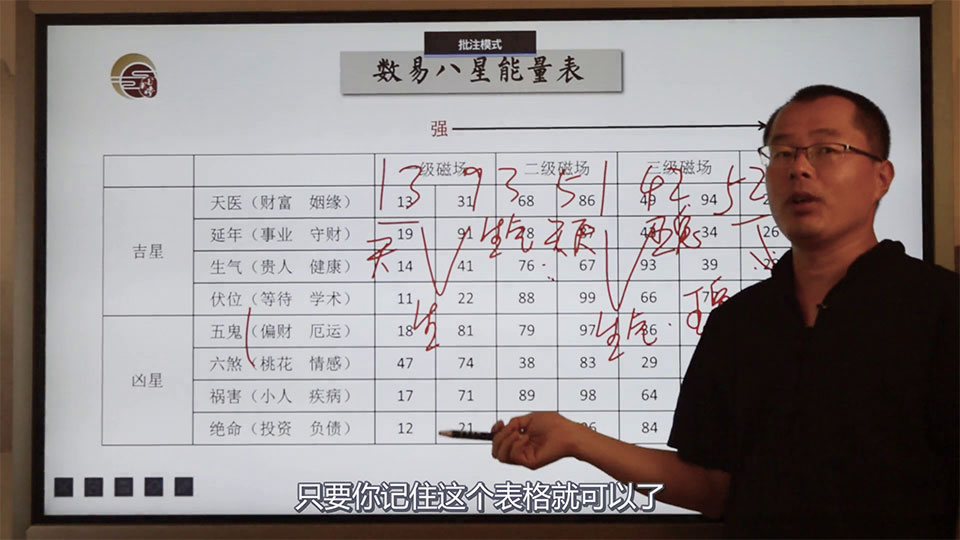 批注模式
数易八星能量表
强
级磁场 二级磁场 三级磁场
吉星
天医（财富 姻缘） 13 31 68 86 49 94
延年（事业 守财） 19 91 34 26
生气（贵人 健康） 14 41 76 67 93 39
伏位（等待 学术） 11 22 88 99 66
凶星
五鬼（偏财 厄运） 18 81 79 97
六煞（桃花 情感） 47 74 38 83 29
祸害（小人 疾病） 17 71 89 98 64
绝命（投资 负债） 12 21 84
13 93 51 42 52
天 生气
生 生气
只要你记住这个表格就可以了